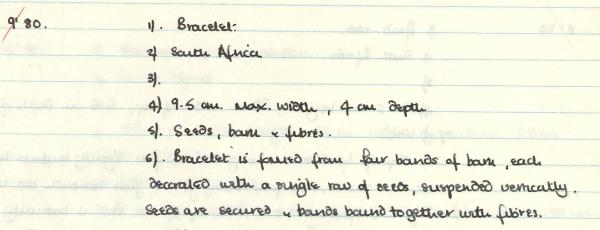 9' 80. 1). Bracelet:
2) South Africa
3).
4) 9.5 cm. Max. width, 4 cm depth
5). Seeds, bark & fibres.
6). Bracelet is formed from four bands of bark, each
decorated with a single row of seeds, suspended vertically.
Seeds are secured & bands bound together with fibres.